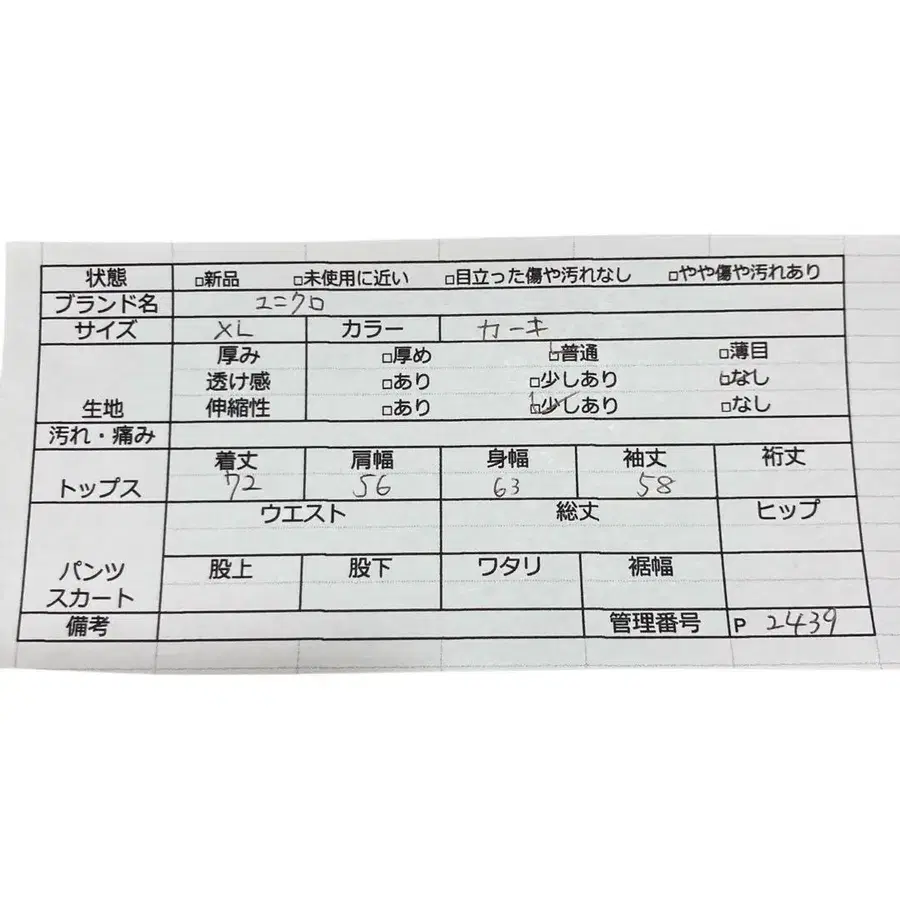 状態 □新品 □未使用に近い □目立った傷や汚れなし □やや傷や汚れあり
ブランド名 ユニクロ
サイズ XL カラー カーキ
厚み □厚め □普通 □薄目
透け感 □あり □少しあり □なし
生地 伸縮性 □あり □少しあり □なし
汚れ・痛み
着丈 肩幅 身幅 袖丈 裄丈
トップス 72 56 63 58
ウエスト 総丈 ヒップ
パンツ 股上 股下 ワタリ 裾幅
スカート
備考 管理番号 P 2439